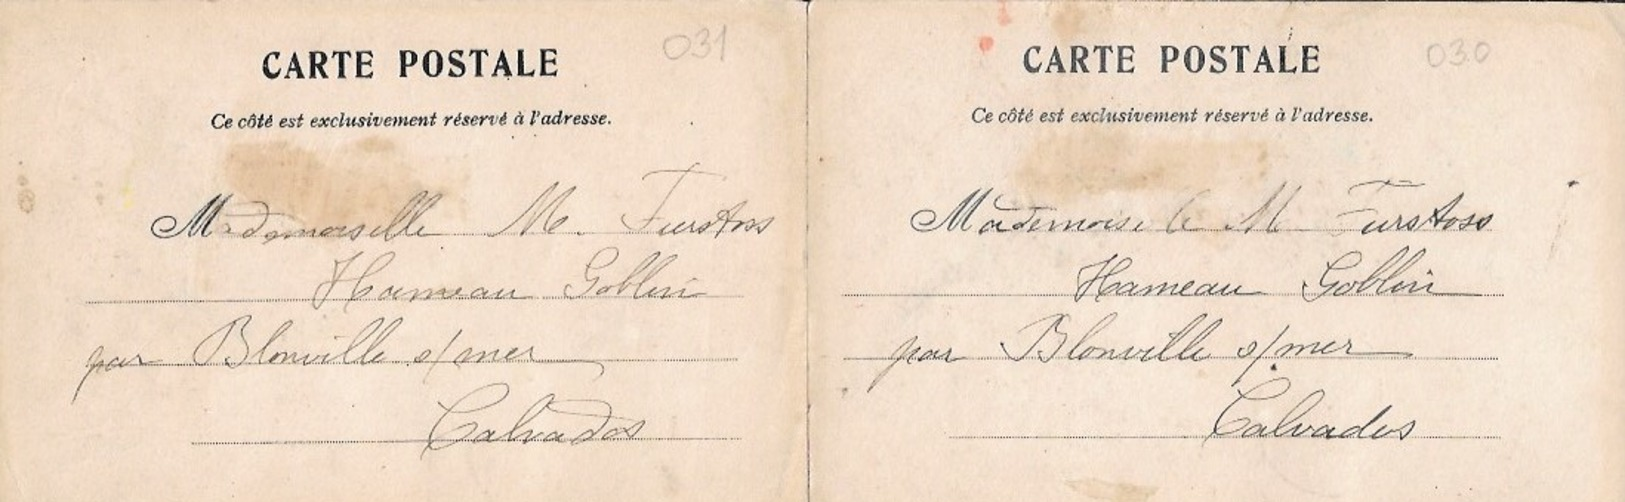 CARTE POSTALE
031
Ce côté est exclusivement réservé à l'adresse.
Mademoiselle M. Furstoss
Hameau Goblin
par Blonville s/mer
Calvados
CARTE POSTALE
030
Ce côté est exclusivement réservé à l'adresse.
Mademoiselle M Furstoss
Hameau Goblin
par Blonville s/mer
Calvados